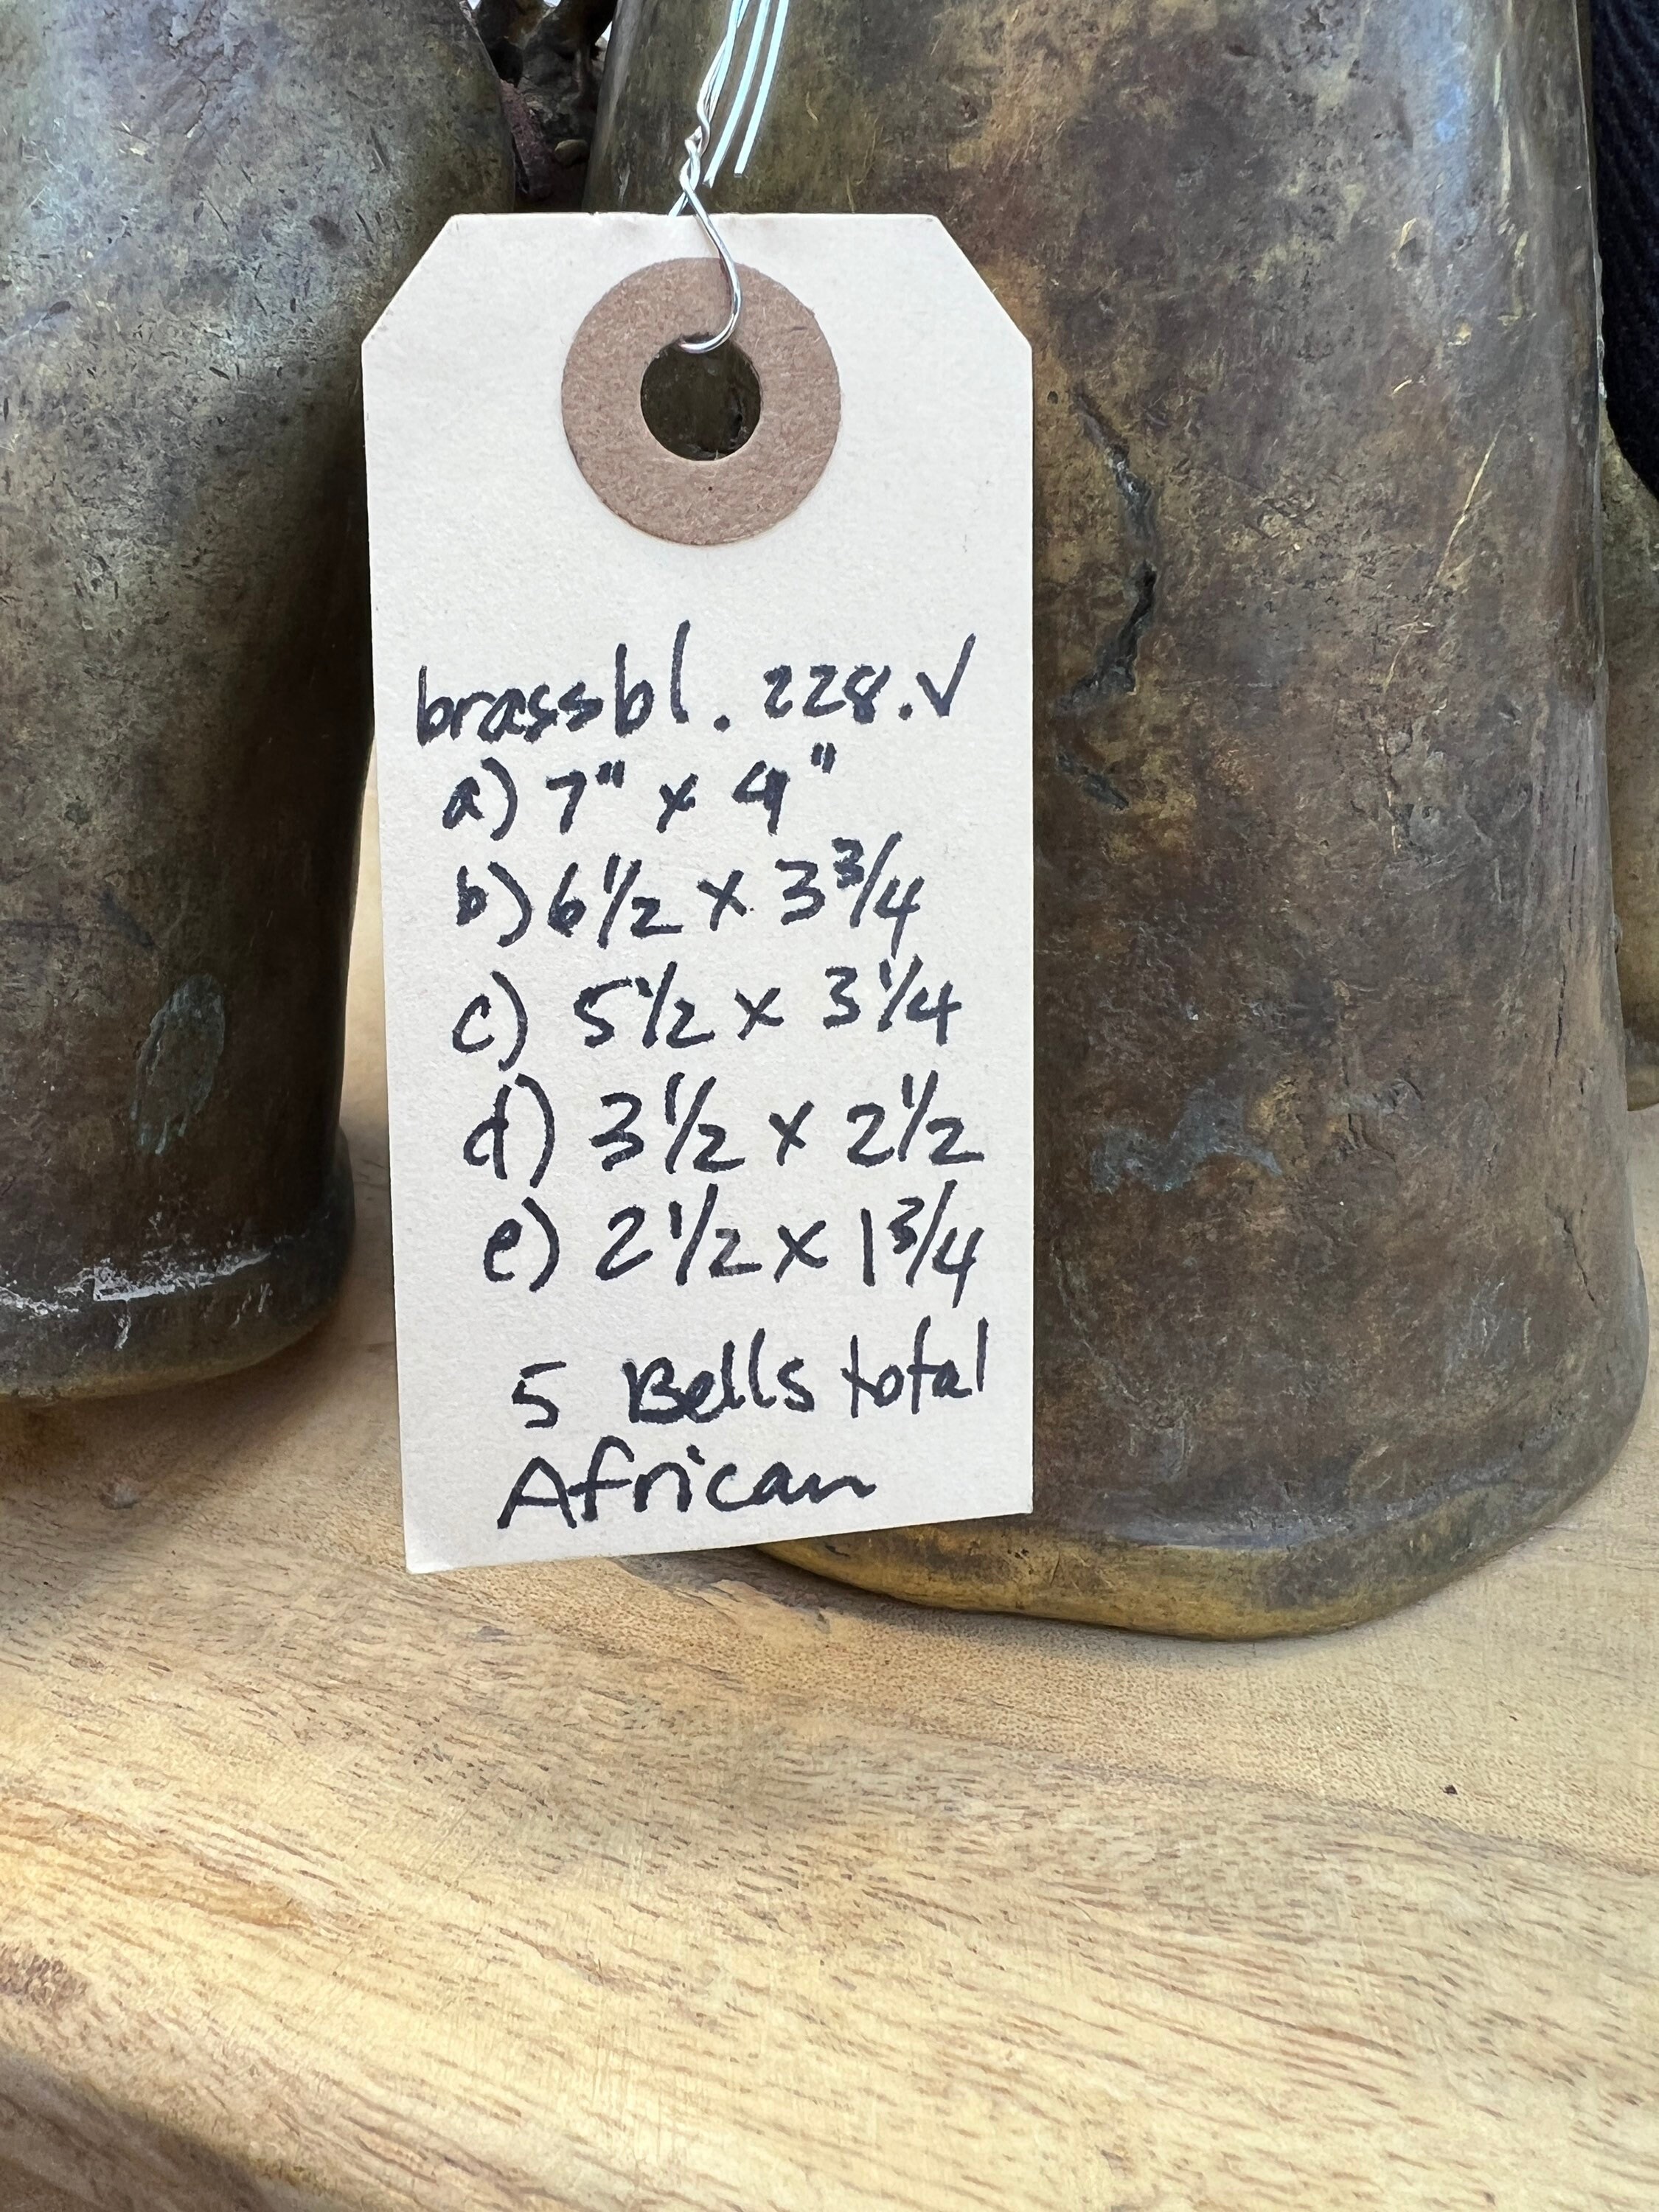 brassbl. 228.√
a) 7" x 4"
b) 6 1/2 x 3 3/4
c) 5 1/2 x 3 1/4
d) 3 1/2 x 2 1/2
e) 2 1/2 x 1 3/4
5 Bells total
African